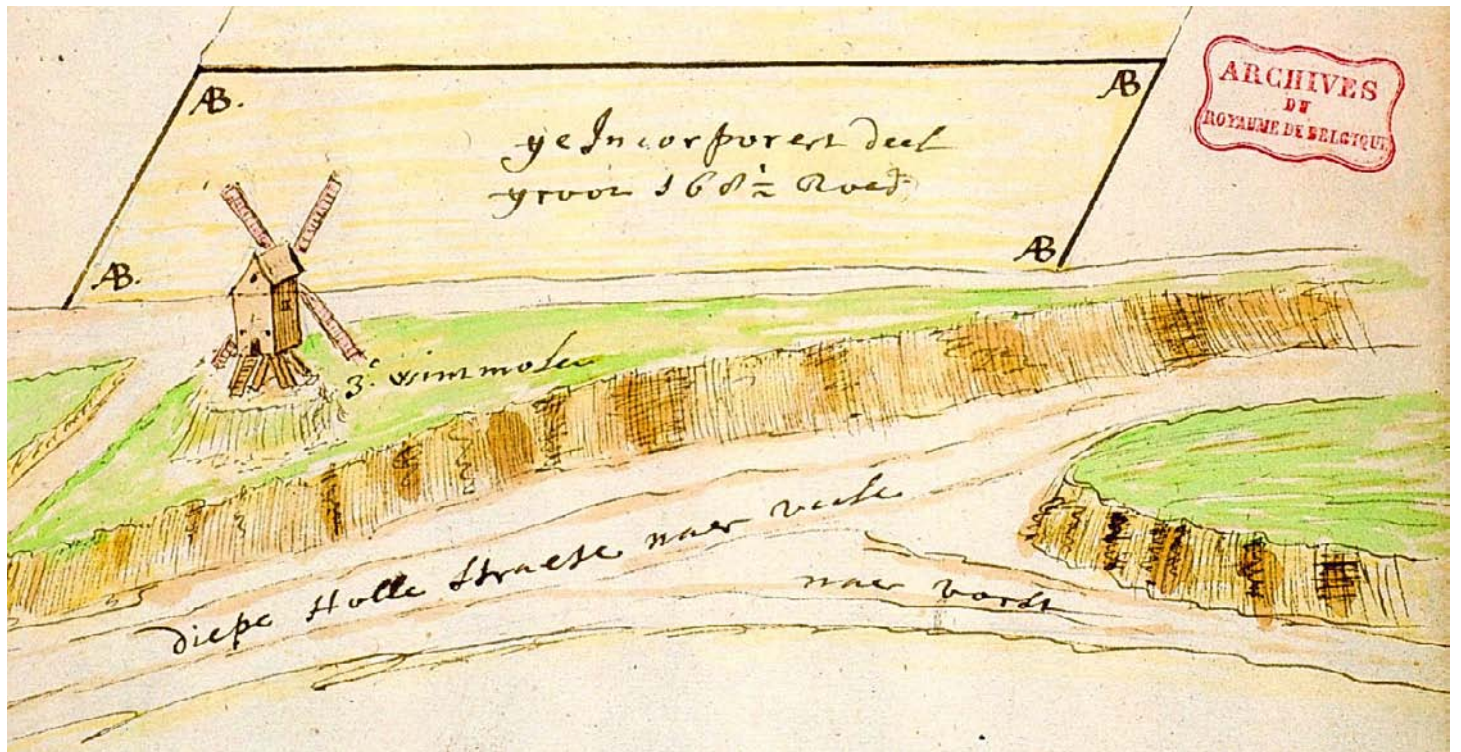 AB.
AB
ARCHIVES
DU
ROYAUME DE BELGIQUE
ge Incorporert deel
groot 168 1/2 Roed
AB.
AB
3e wintmolen
diepe Holle Straete naer
naer vorst